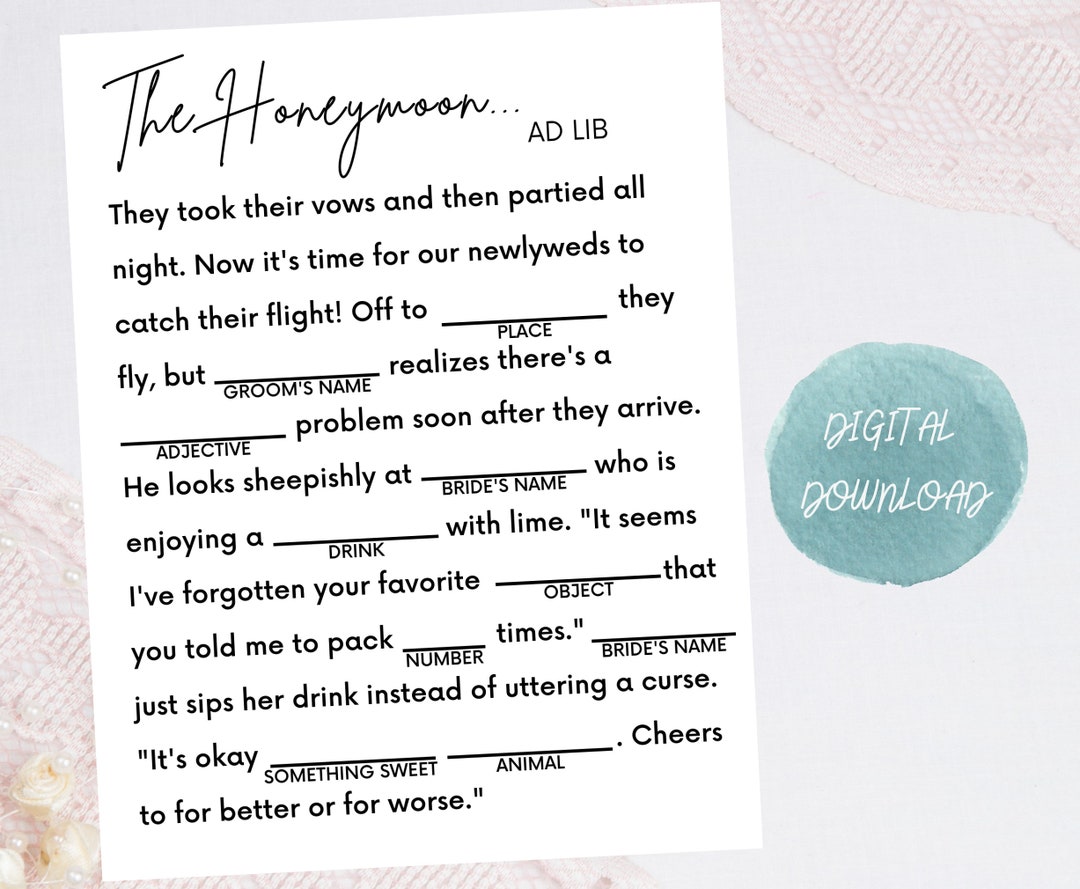 The Honeymoon...
AD LIB
They took their vows and then partied all
night. Now it's time for our newlyweds to
catch their flight! Off to ____________ they
PLACE
fly, but ____________ realizes there's a
GROOM'S NAME
____________ problem soon after they arrive.
ADJECTIVE
He looks sheepishly at ____________ who is
BRIDE'S NAME
enjoying a ____________ with lime. "It seems
DRINK
I've forgotten your favorite ____________that
OBJECT
you told me to pack ______ times." __________
NUMBER BRIDE'S NAME
just sips her drink instead of uttering a curse.
"It's okay ____________ ____________. Cheers
SOMETHING SWEET ANIMAL
to for better or for worse."
DIGITAL
DOWNLOAD